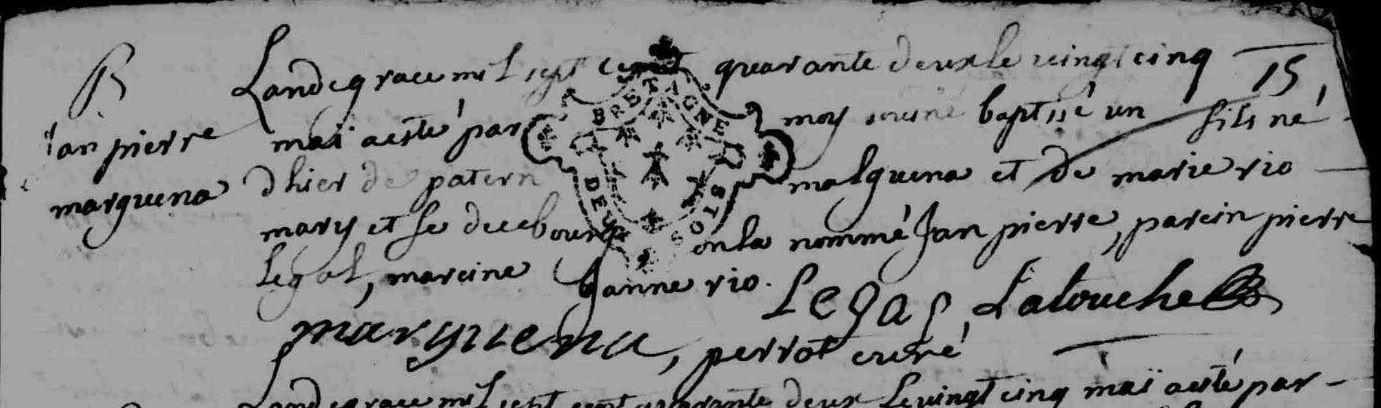 B
Jan pierre
marquena
Landegrace mil sept cent quarante deux le vingt cinq
15
maï aesté par moy baptisé un fils né
dhier de patern malquena et de marie rio
mary et fe decebourg onla nommé Jan pierre, parein pierre
legal, mareine Janne rio.
Legal, Latouche
marquena, perrot curé
BRETAGNE
DEUX SOLS
Landegrace mil sept cent quarante deux le vingt cinq maï aesté par-